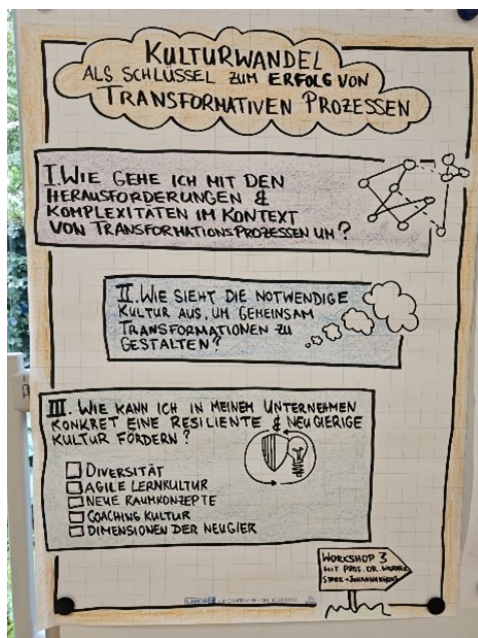 KULTURWANDEL
ALS SCHLÜSSEL ZUM ERFOLG VON
TRANSFORMATIVEN PROZESSEN
I. WIE GEHE ICH MIT DEN
HERAUSFORDERUNGEN &
KOMPLEXITÄTEN IM KONTEXT
VON TRANSFORMATIONSPROZESSEN UM?
II. WIE SIEHT DIE NOTWENDIGE
KULTUR AUS, UM GEMEINSAM
TRANSFORMATIONEN ZU
GESTALTEN?
III. WIE KANN ICH IN MEINEM UNTERNEHMEN
KONKRET EINE RESILIENTE & NEUGIERIGE
KULTUR FÖRDERN?
DIVERSITÄT
AGILE LERNKULTUR
NEUE RAUMKONZEPTE
COACHING KULTUR
DIMENSIONEN DER NEUGIER
WORKSHOP 3
MIT PROF. DR.